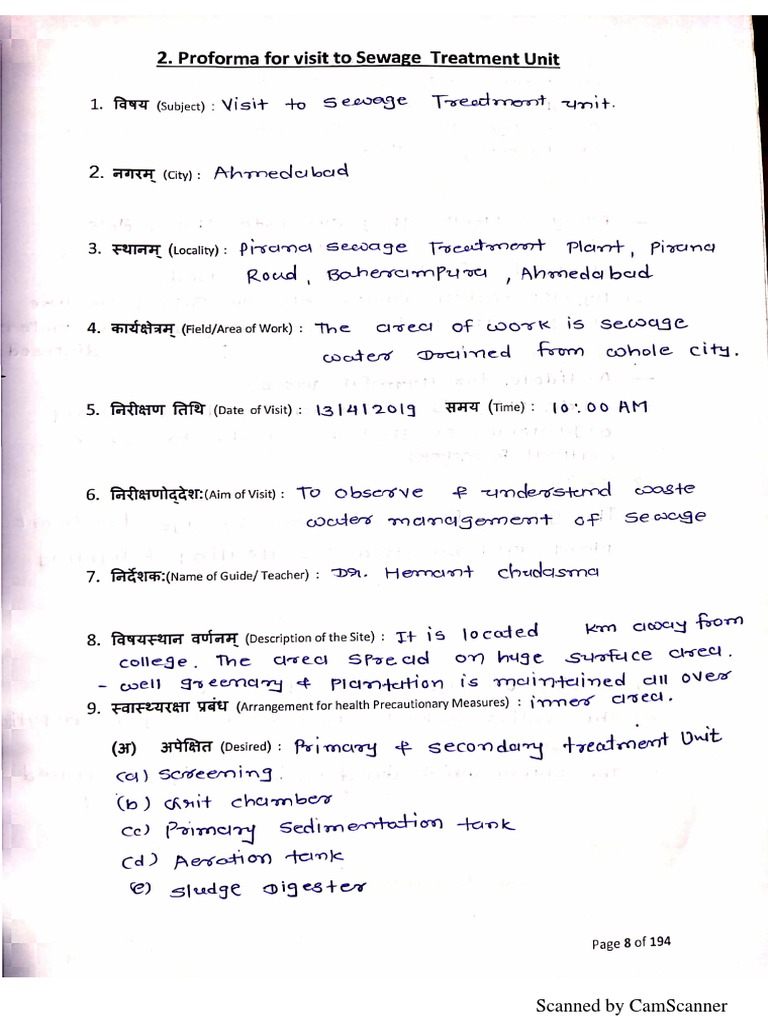 2. Proforma for visit to Sewage Treatment Unit
1. विषय (Subject) : Visit to Sewage Treatment unit.
2. नगरम् (City) : Ahmedabad
3. स्थानम् (Locality) : Pirana Sewage Treatment Plant, Pirana
Road, Baherampura, Ahmedabad
4. कार्यक्षेत्रम् (Field/Area of Work) : The area of work is sewage
water Drained from whole city.
5. निरीक्षण तिथि (Date of Visit) : 13/4/2019 समय (Time) : 10:00 AM
6. निरीक्षणोद्देशः(Aim of Visit) : To observe & understand waste
water management of sewage
7. निर्देशकः(Name of Guide/ Teacher) : Dr. Hemant Chudasma
8. विषयस्थान वर्णनम् (Description of the Site) : It is located km away from
college. The area spread on huge surface area.
- well greenary & plantation is maintained all over
inner area.
9. स्वास्थ्यरक्षा प्रबंध (Arrangement for health Precautionary Measures) :
(अ) अपेक्षित (Desired) : Primary & secondary treatment Unit
(a) screening.
(b) Grit chamber
(c) Primary sedimentation tank
(d) Aeration tank
(e) Sludge Digester
Page 8 of 194
Scanned by CamScanner